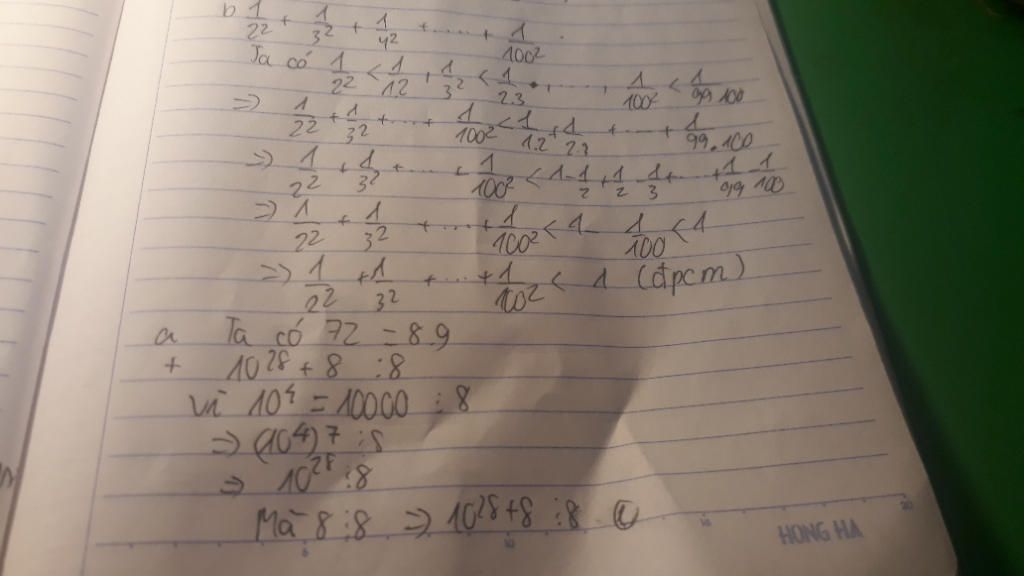 b 1/2² + 1/3² + 1/4² + ..... + 1/100² .
Ta có 1/2² < 1/1.2 + 1/3² < 1/2.3 + ..... + 1/100² < 1/99.100
=> 1/2² + 1/3² + ... + 1/100² < 1/1.2 + 1/2.3 + ..... + 1/99.100
=> 1/2² + 1/3² + ..... + 1/100² < 1 - 1/2 + 1/2 - 1/3 + ... + 1/99 - 1/100
=> 1/2² + 1/3² + .... + 1/100² < 1 - 1/100 < 1
=> 1/2² + 1/3² + .... + 1/100² < 1 (đpcm)
a Ta có 72 = 8.9
+ 10²⁸ + 8 ⋮ 8
Vì 10⁴ = 10000 ⋮ 8
=> (10⁴)⁷ ⋮ 8
=> 10²⁸ ⋮ 8
Mà 8 ⋮ 8 => 10²⁸ + 8 ⋮ 8
5 10 15 20
HONG HA